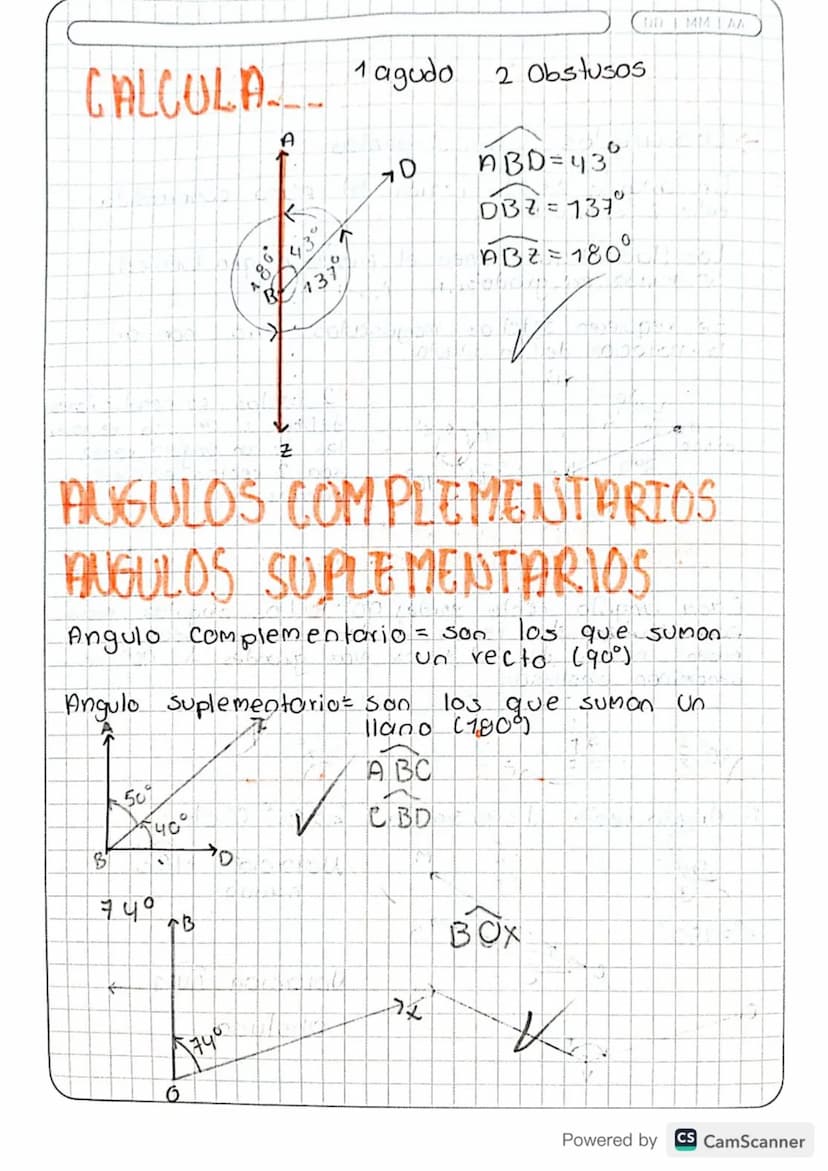 DD | MM | AA
CALCULA...
1 agudo 2 Obstusos
A
D
ABD = 43°
DBZ = 137°
ABZ = 180°
180°
43°
137°
B
Z
ANGULOS COMPLEMENTARIOS
ANGULOS SUPLEMENTARIOS
Angulo complementario = son los que suman
un recto (90°)
Angulo suplementario = son los que suman un
llano (180°)
A
50°
40°
B
D
ABC
CBD
74°
B
BOX
X
74°
O
Powered by CS CamScanner